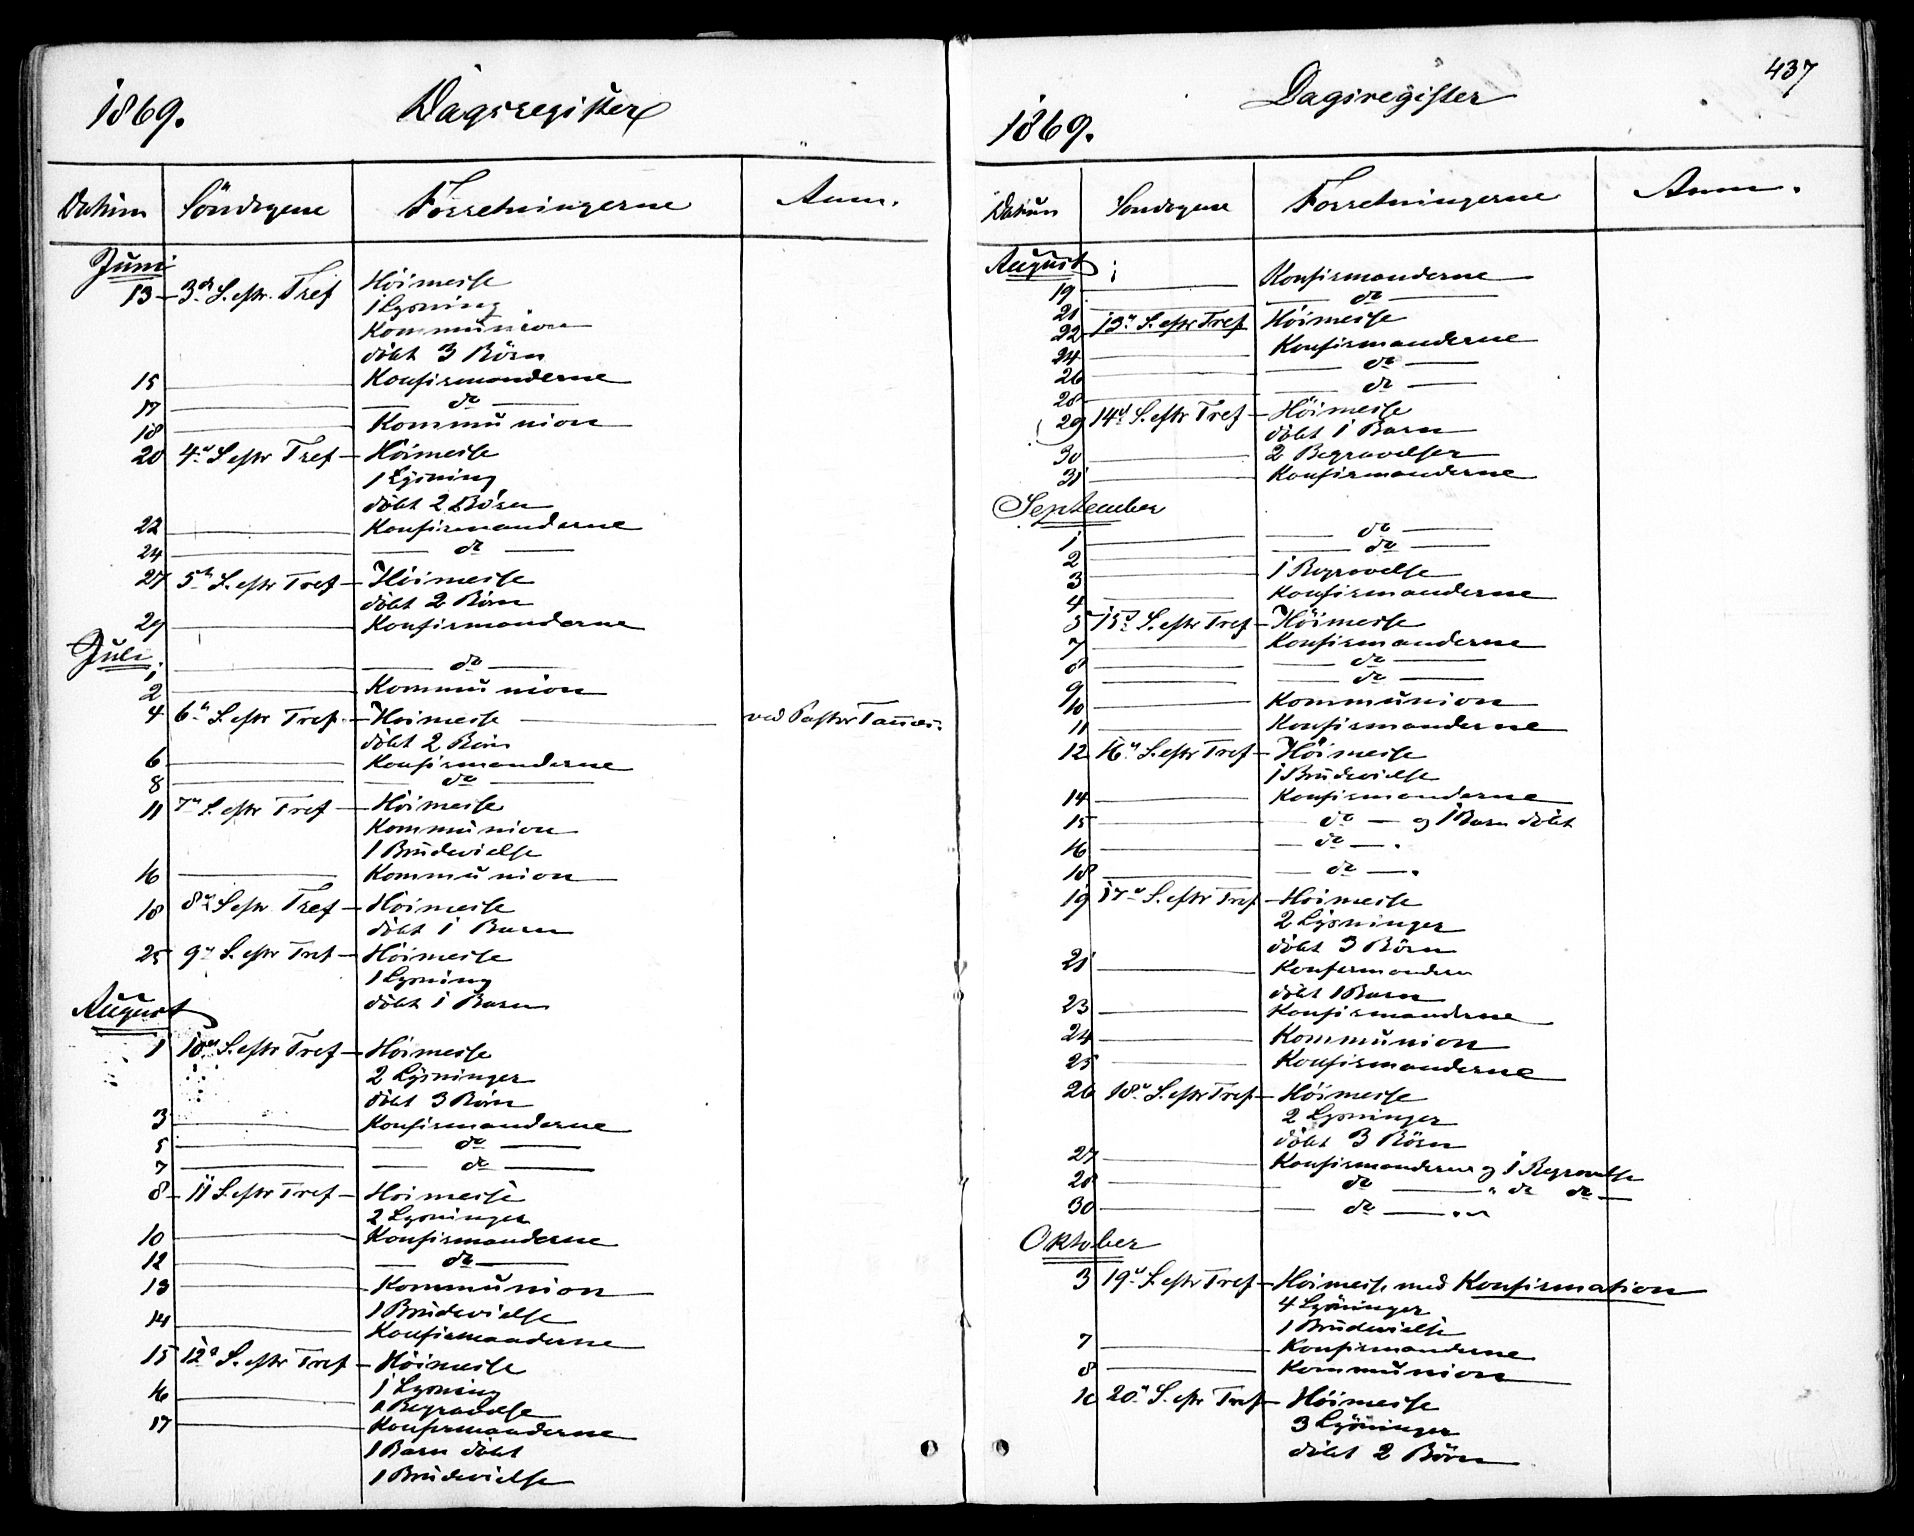 1869. Dagsregister
Datum Söndagene Forretningerne Anm.
Juni
13 3die S. eftr. Tref Höimesse
1 Lysning
Kommunion
döbt 3 Börn
15 Konfirmanderne
17 do
18 Kommunion
20 4de S eftr Tref Höimesse
1 Lysning
döbt 2 Börn
22 Konfirmanderne
24 do
27 5te S. eftr Tref Höimesse
döbt 2 Börn
29 Konfirmanderne
Juli
1 do
2 Kommunion
4 6te S. eftr Tref. Höimesse ved Pastor
döbt 2 Börn
6 Konfirmanderne
8 do
11 7de S. eftr Tref Höimesse
Kommunion
1 Brudevielse
16 Kommunion
18 8de S eftr Tref Höimesse
döbt 1 Barn
25 9de S. eftr Tref Höimesse
1 Lysning
döbt 1 Barn
August
1 10de S. eftr Tref Höimesse
2 Lysninger
döbt 3 Börn
3 Konfirmanderne
5 do
7 do
8 11 S. eftr Tref Höimesse
2 Lysninger
10 Konfirmanderne
12 do
13 Kommunion
1 Brudevielse
14 Konfirmanderne
15 12te S. eftr Tref Höimesse
1 Lysning
16 1 Begravelse
17 Konfirmanderne
1 Barn döbt
1 Brudevielse
437
1869. Dagsregister
Datum Söndagene Forretningerne Anm.
August
19 Konfirmanderne
21 do
22 13de S. eftr Tref Höimesse
24 Konfirmanderne
26 do
28 do
29 14de S. eftr Tref Höimesse
döbt 1 Barn
30 2 Begravelser
31 Konfirmanderne
September
1 do
2 do
3 1 Begravelse
4 Konfirmanderne
5 15de S. eftr Tref Höimesse
7 Konfirmanderne
8 do
9 do
10 Kommunion
11 Konfirmanderne
12 16de S. eftr Tref Höimesse
1 Brudevielse
14 Konfirmanderne
15 do og 1 Barn döbt
16 do
18 do
19 17de S. eftr Tref Höimesse
2 Lysninger
döbt 3 Börn
21 Konfirmandern
döbt 1 Barn
23 Konfirmanderne
24 Kommunion
25 Konfirmanderne
26 18de S. eftr Tref Höimesse
2 Lysninger
döbt 3 Börn
27 Konfirmanderne og 1 Begravelse
28 do " do do
30 do
Oktober
3 19de S. eftr Tref Höimesse med Konfirmation
4 Lysninger
1 Brudevielse
7 Konfirmanderne
8 Kommunion
10 20de S. eftr Tref Höimesse
3 Lysninger
döbt 2 Börn